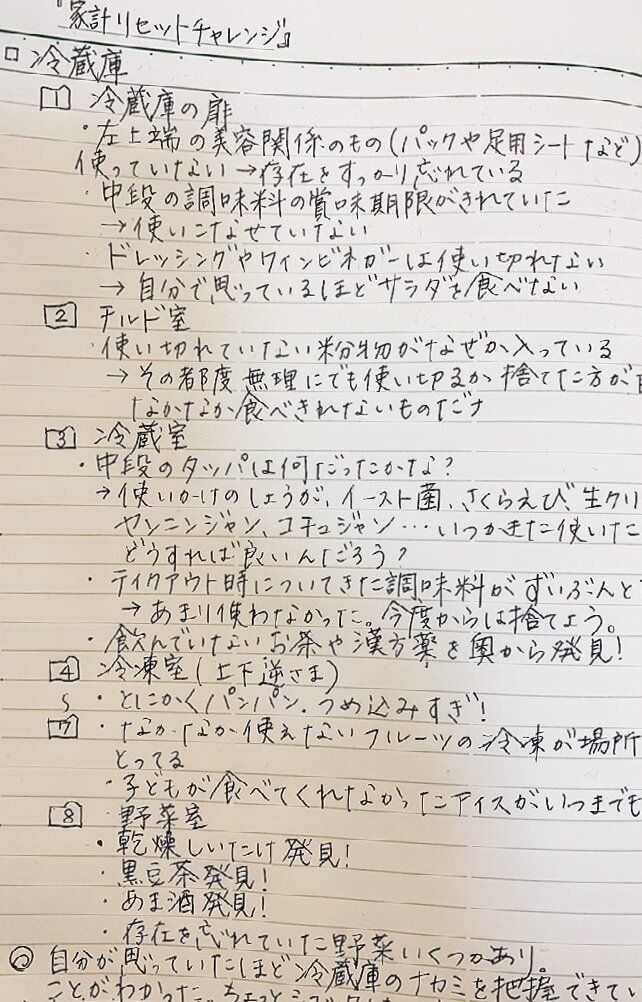 『家計リセットチャレンジ』
□ 冷蔵庫
1 冷蔵庫の扉
・左上端の美容関係のもの(パックや足用シートなど)
使っていない→存在をすっかり忘れている
・中段の調味料の賞味期限がきれていた
→使いこなせていない
・ドレッシングやワインビネガーは使い切れない
→自分で思っているほどサラダを食べない
2 チルド室
・使い切れていない粉物がなぜか入っている
→その都度無理にでも使い切るか捨てた方が
なかなか食べきれないものだナ
3 冷蔵室
・中段のタッパは何だったかな?
→使いかけのしょうが、イースト菌、さくらえび、生クリ
ヤンニンジャン、コチュジャン…いつかまた使いた
どうすれば良いんだろう?
・テイクアウト時についてきた調味料がずいぶんと
→あまり使わなかった。今度からは捨てよう。
・飲んでいないお茶や漢方薬を奥から発見!
4 冷凍室(上下逆さま)
〜・とにかくパンパン。つめ込みすぎ!
7 ・なかなか使えないフルーツの冷凍が場所
とってる
・子どもが食べてくれなかったアイスがいつまでも
8 野菜室
・乾燥しいたけ発見!
・黒豆茶発見!
・あま酒発見!
・存在を忘れていた野菜いくつかあり。
◎自分が思っていたほど冷蔵庫のナカミを把握できてい
ことがわかった。ちょっと